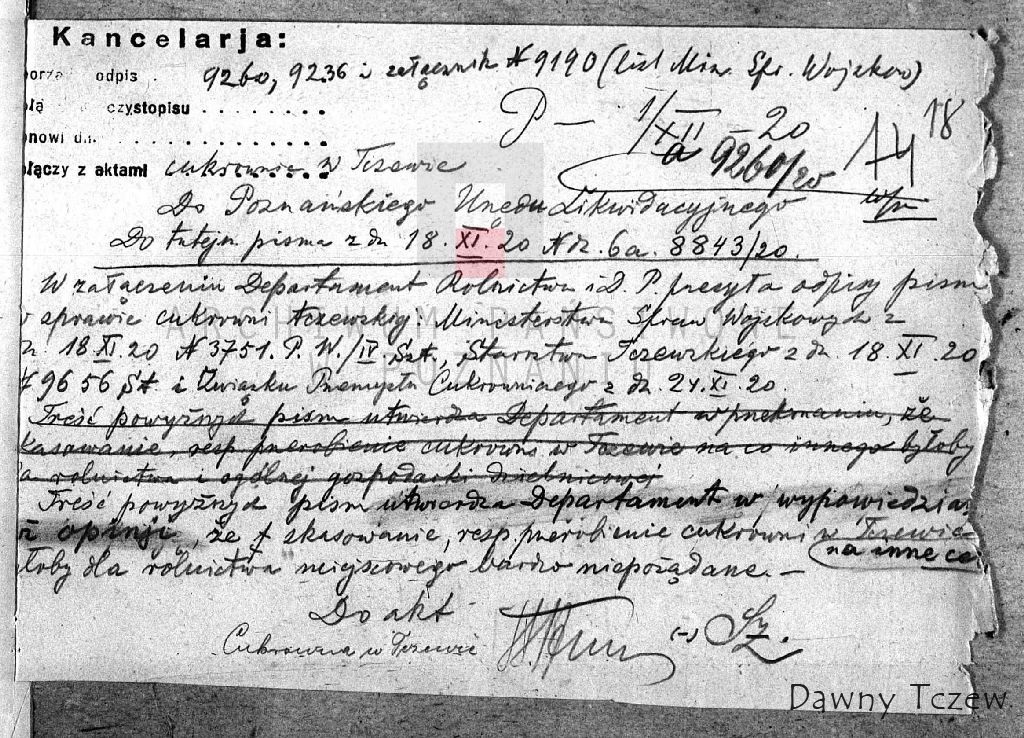 Kancelarja:
odpis 9260, 9236 i załącznik N 9190 (list Min. Spr. Wojskow)
czystopisu . . . . . . . .
18
P — 1/XII – 20
a 9260/20
łączy z aktami cukrownia w Tczewie
Do Poznańskiego Urzędu Likwidacyjnego
Do tutejsz. pisma z dn. 18. XI. 20 N dz. 6a. 8843/20.
W załączeniu Departament Rolnictwa i D. P. przesyła odpisy pism
sprawie cukrowni tczewskiej: Ministerstwa Spraw Wojskowych z
18 XI 20 N 3751. P. W./IV. Szt., Starostwa Tczewskiego z dn. 18. XI. 20
9656 i Związku Przemysłu Cukrowniczego z dn. 24. XI. 20.
Treść powyższych pism utwierdza Departament w przekonaniu, że
kasowanie, resp. przerobienie cukrowni w Tczewie na co innego byłoby
rolnictwa i ogólnej gospodarki dzielnicowej
Treść powyższych pism utwierdza Departament w wypowiedzia.
opinji, że skasowanie, resp. przerobienie cukrowni w Tczewie
na inne ce
łoby dla rolnictwa miejscowego bardzo niepożądane. —
Do akt
Cukrownia w Tczewie
(-) Sz.
Dawny Tczew